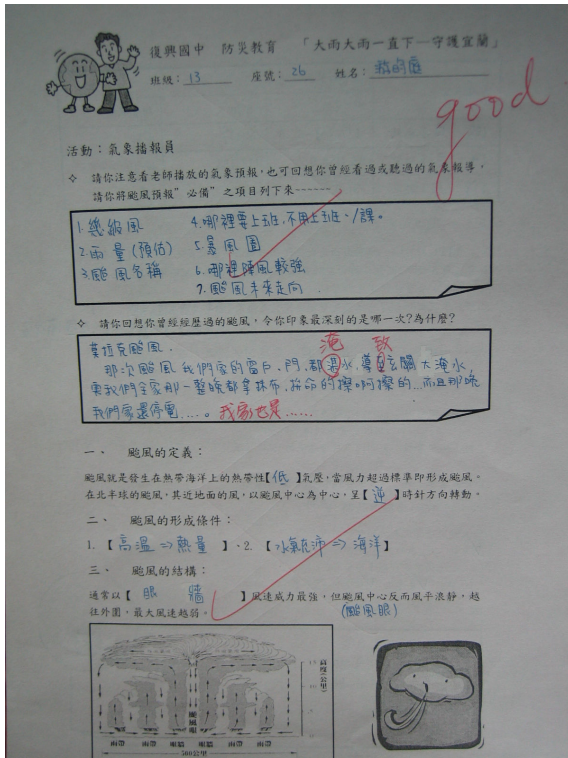 復興國中 防災教育 「大雨大雨一直下—守護宜蘭」
班級：13 座號：26 姓名：
good
活動：氣象播報員
✧ 請你注意看老師播放的氣象預報，也可回想你曾經看過或聽過的氣象報導，
請你將颱風預報"必備"之項目列下來------
1.幾級風 4.哪裡要上班,不用上班、/課。
2.雨量(預估) 5.暴風圈
3.颱風名稱 6.哪裡陣風較強
7.颱風未來走向.
✧ 請你回想你曾經經歷過的颱風，令你印象最深刻的是哪一次?為什麼?
淹 致
莫拉克颱風.
那次颱風我們家的窗戶、門,都水,導玄關大淹水,
害我們全家那一整晚都拿抹布,拚命的擦啊擦的...而且那晚
我們家還停電.....。我家也是......
一、 颱風的定義：
颱風就是發生在熱帶海洋上的熱帶性【低】氣壓，當風力超過標準即形成颱風。
在北半球的颱風，其近地面的風，以颱風中心為中心，呈【逆】時針方向轉動。
二、 颱風的形成條件：
1.【高溫⇒熱量】、2.【水氣充沛⇒海洋】
三、 颱風的結構：
通常以【眼牆】風速威力最強，但颱風中心反而風平浪靜，越
往外圍，最大風速越弱。 (颱風眼)
高度(公里)
15
颱風眼
雨帶 雨帶 眼牆 眼牆 雨帶 雨帶
500公里